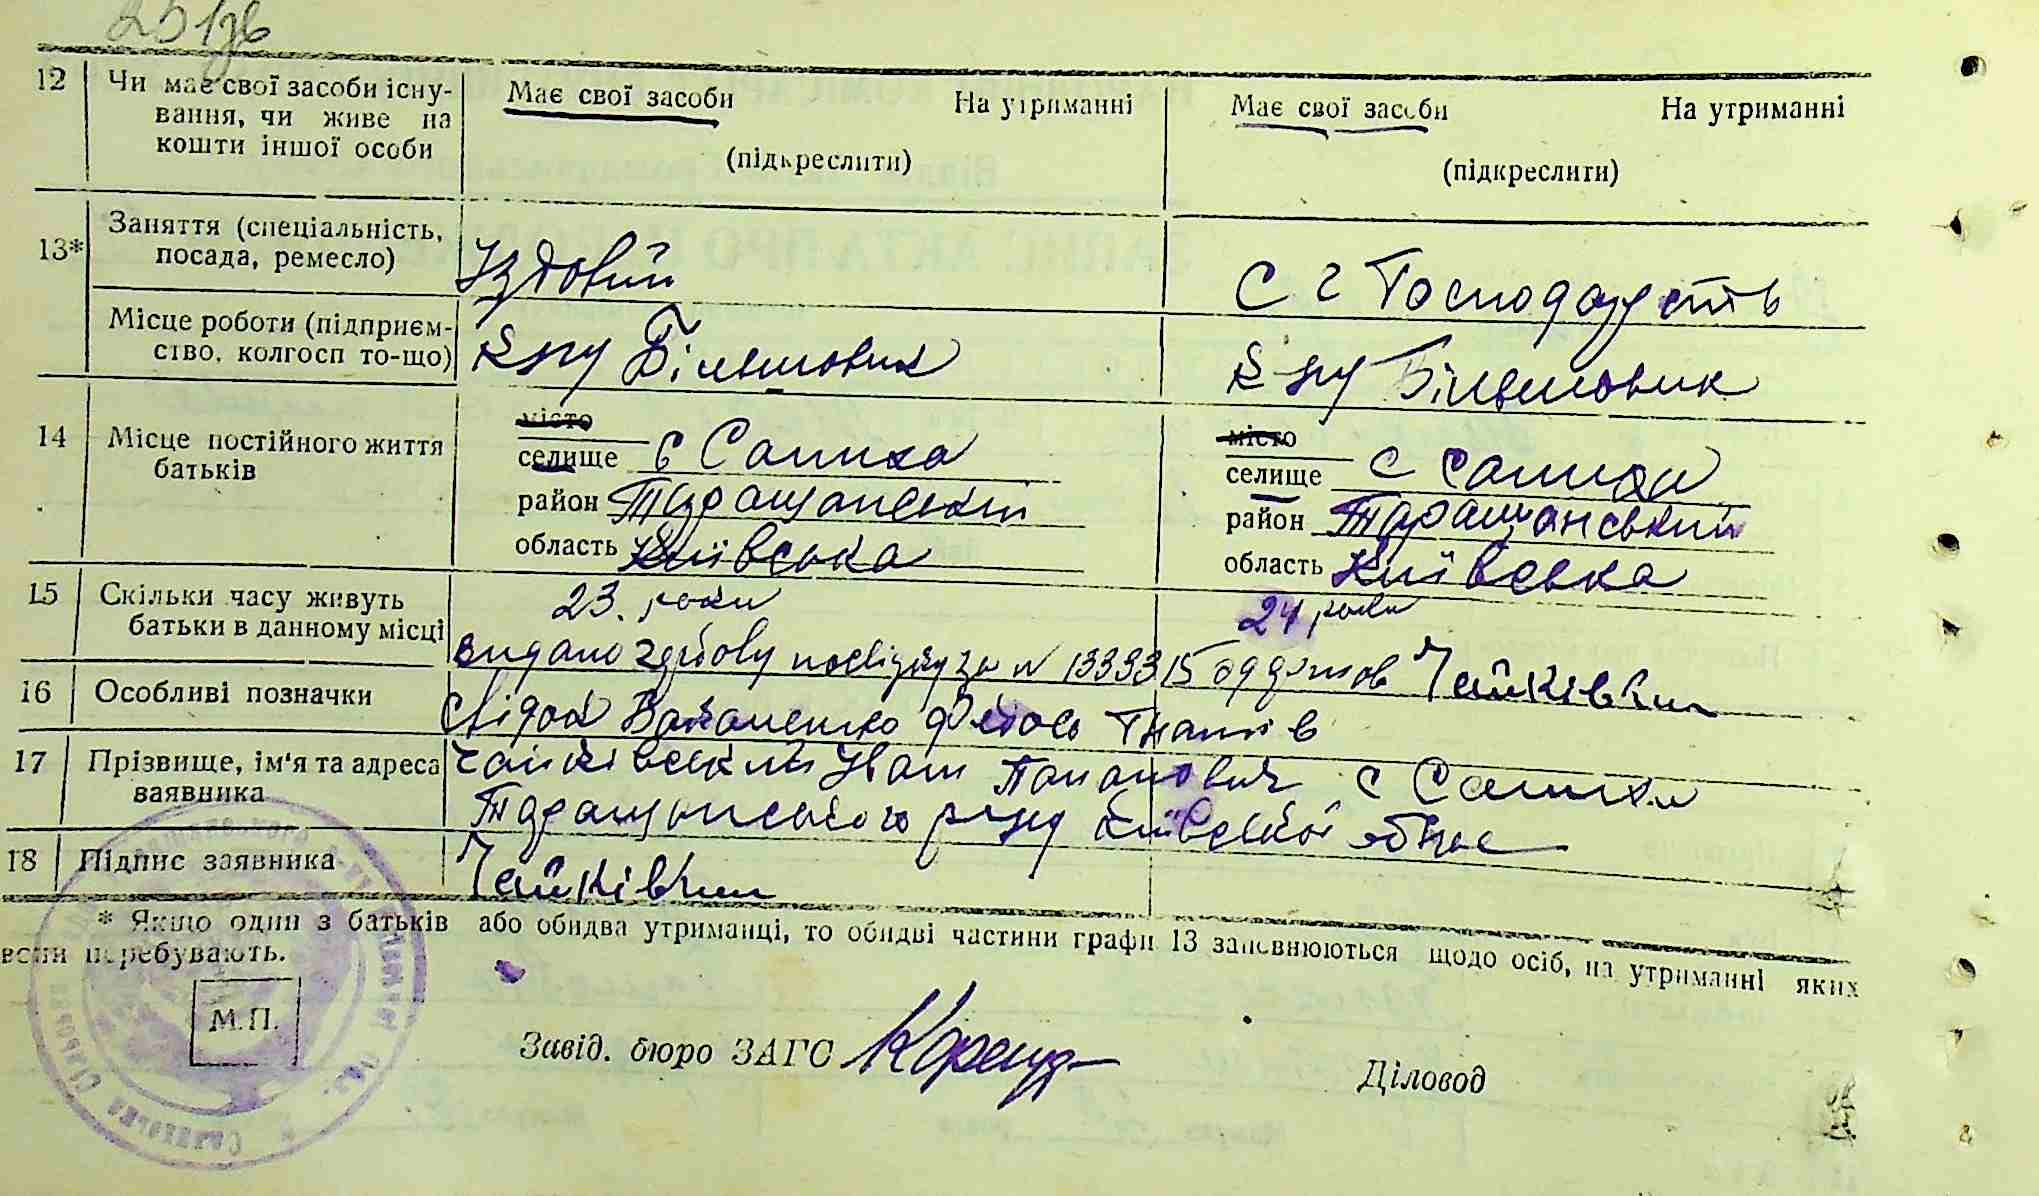 12 Чи має свої засоби існу- Має свої засоби На утриманні Має свої засоби На утриманні
вання, чи живе на
кошти іншої особи (підкреслити) (підкреслити)
13* Заняття (спеціальність,
посада, ремесло) Їздовий С г Господарсть
Місце роботи (підприєм-
ство, колгосп то-що) Більшовик Більшовик
14 Місце постійного життя батьків
місто місто
селище с Салиха селище с Салиха
район Таращанський район Таращанський
область Київська область Київська
15 Скільки часу живуть 23. роки 24 роки
батьки в данному місці
видано за № 133315 Чайківський
16 Особливі позначки
свідок Гнатів
17 Прізвище, ім'я та адреса Чайківський Іван Панасович с Салиха
заявника Таращанського р-ну Київської облас
18 Підпис заявника Чайківський
* Якщо один з батьків або обидва утриманці, то обидві частини графи 13 заповнюються щодо осіб, на утриманні яких
вони перебувають.
М.П.
Завід. бюро ЗАГС Діловод